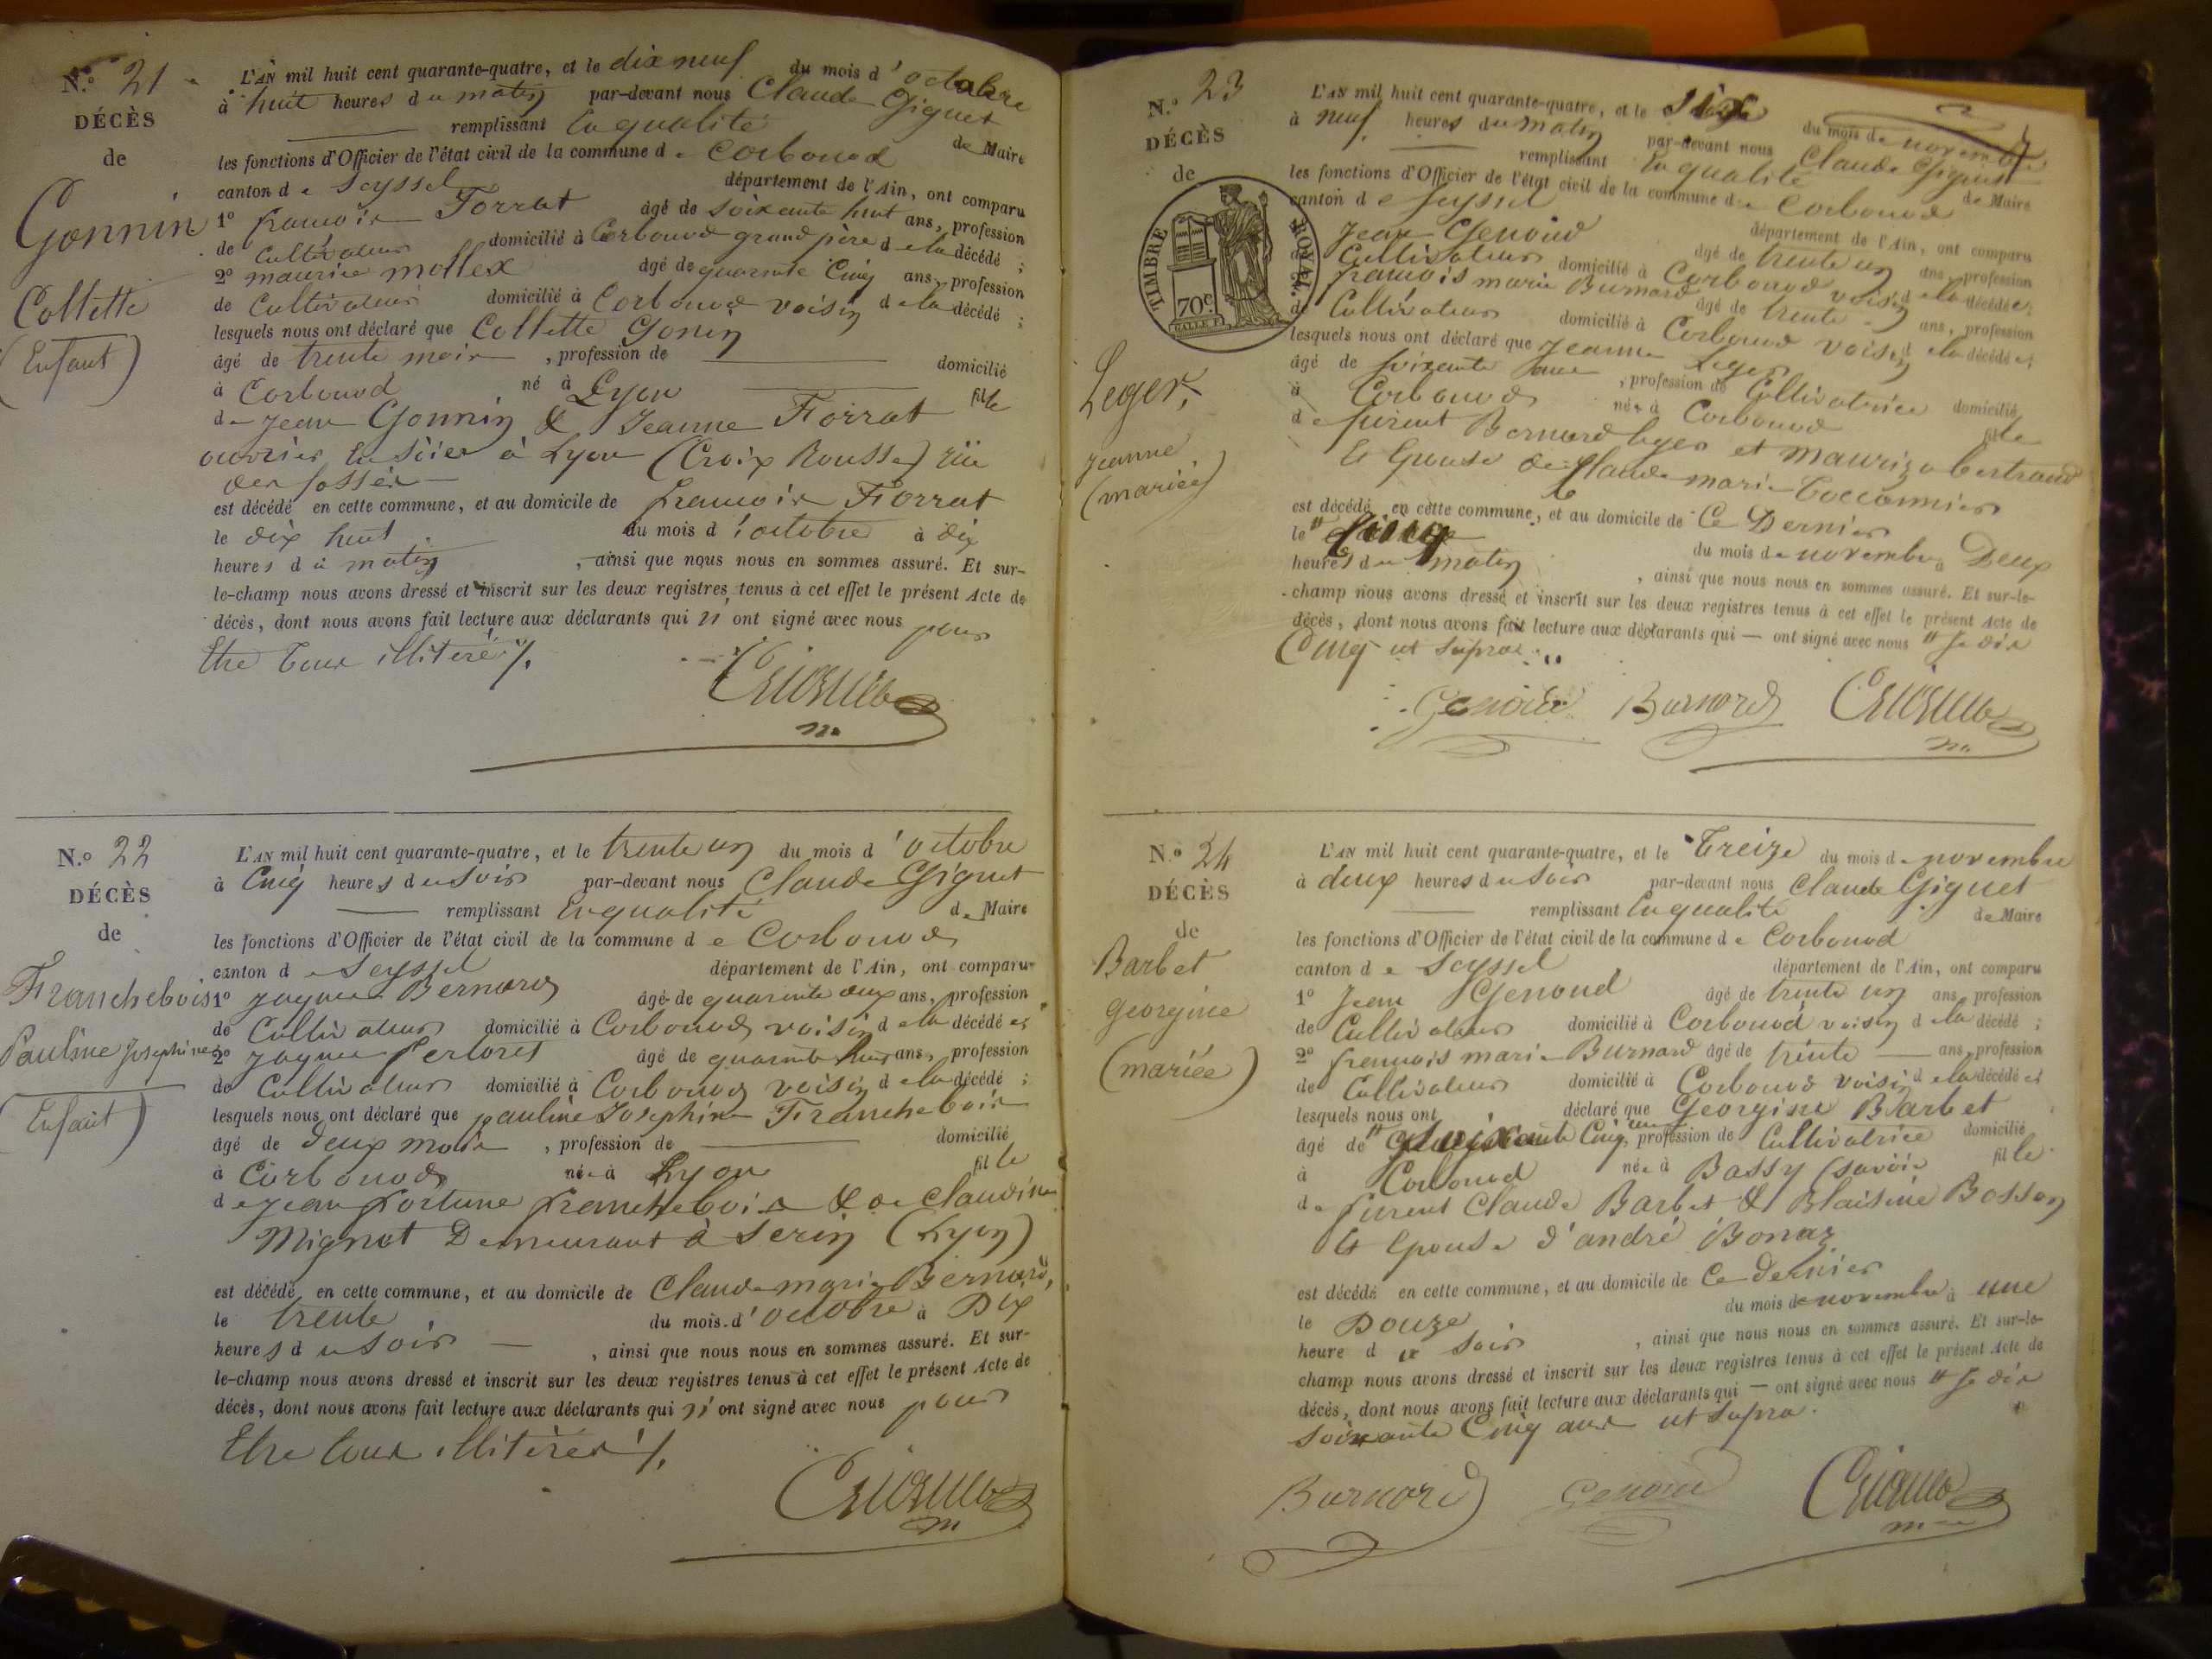 N.° 21
DÉCÈS
de
Gonnin
Collette
(Enfant)
L'AN mil huit cent quarante-quatre, et le dix neuf du mois d'octobre
à huit heures du matin par-devant nous Claude Giguet
remplissant en qualité de Maire
les fonctions d'Officier de l'état civil de la commune de Corbonod
canton de Seyssel département de l'Ain, ont comparu
1° francois Forrat âgé de soixante huit ans, profession
de Cultivateur domicilié à Corbonod grand père de la décédé ;
2° maurice mollex âgé de quarante Cinq ans, profession
de Cultivateur domicilié à Corbonod voisin de la décédé ;
lesquels nous ont déclaré que Collette Gonin
âgé de trente mois , profession de domicilié
à Corbonod né à Lyon fille
de jean Gonnin & Jeanne Forrat
ouvrier en Soies à Lyon (Croix Rousse) rüe
des fossés
est décédé en cette commune, et au domicile de francois Forrat
le dix huit du mois d'octobre à dix
heures du matin , ainsi que nous nous en sommes assuré. Et sur-
le-champ nous avons dressé et inscrit sur les deux registres tenus à cet effet le présent Acte de
décès, dont nous avons fait lecture aux déclarants qui n'ont signé avec nous pour
Etre tous illiterés ./.
Giguet
m
N.° 22
DÉCÈS
de
Franchebois
Pauline Josephine
(Enfant)
L'AN mil huit cent quarante-quatre, et le trente un du mois d'octobre
à Cinq heures du soir par-devant nous Claude Giguet
remplissant En qualité de Maire
les fonctions d'Officier de l'état civil de la commune de Corbonod
canton de Seyssel département de l'Ain, ont comparu
1° jaques Bernard âgé de quarante deux ans, profession
de Cultivateur domicilié à Corbonod voisin de la décédée ;
2° jaques âgé de quarante ans, profession
de Cultivateur domicilié à Corbonod voisin de la décédé ;
lesquels nous ont déclaré que pauline Josephine Franchebois
âgé de deux mois , profession de domicilié
à Corbonod née à Lyon fille
de jean fortune franchebois & de claudine
Mignot Demeurant à Serin (Lyon)
est décédé en cette commune, et au domicile de Claude marie Bernard,
le trente du mois d'octobre à Dix
heures du soir , ainsi que nous nous en sommes assuré. Et sur-
le-champ nous avons dressé et inscrit sur les deux registres tenus à cet effet le présent Acte de
décès, dont nous avons fait lecture aux déclarants qui n'ont signé avec nous pour
Etre tous illiterés ./.
Giguet
m
N.° 23
DÉCÈS
de
TIMBRE ROYAL
70c.
Leger,
jeanne
(mariée)
L'AN mil huit cent quarante-quatre, et le six du mois de novembre
à neuf heures du matin par-devant nous Claude Giguet
remplissant En qualité de Maire
les fonctions d'Officier de l'état civil de la commune de Corbonod
canton de Seyssel département de l'Ain, ont comparu
Jean Genoud âgé de trente un ans, profession
Cultivateur domicilié à Corbonod voisin de la décédée ;
francois marie Burnard âgé de trente ans, profession
de Cultivateur domicilié à Corbonod voisin de la décédée ;
lesquels nous ont déclaré que jeanne Leger
âgé de soixante ans , profession de Cultivatrice domicilié
à Corbonod née à Corbonod fille
de furent Bernard leger et mauriza bertrand
Et Epouse de Claude marie Cocconnier
est décédé en cette commune, et au domicile de Ce Dernier
le " cinq du mois de novembre à Deux
heures du matin , ainsi que nous nous en sommes assuré. Et sur-le-
champ nous avons dressé et inscrit sur les deux registres tenus à cet effet le présent Acte de
décès, dont nous avons fait lecture aux déclarants qui — ont signé avec nous " je dis
Cinq ut supra.
Genoud Burnard Giguet
m
N.° 24
DÉCÈS
de
Barbet
georgine
(mariée)
L'AN mil huit cent quarante-quatre, et le Treize du mois de novembre
à deux heures du soir par-devant nous Claude Giguet
remplissant En qualité de Maire
les fonctions d'Officier de l'état civil de la commune de Corbonod
canton de Seyssel département de l'Ain, ont comparu
1° Jean Genoud âgé de trente un ans, profession
de Cultivateur domicilié à Corbonod voisin de la décédé ;
2° francois marie Burnard âgé de trente — ans, profession
de Cultivateur domicilié à Corbonod voisin de la décédé et
lesquels nous ont déclaré que Georgine Barbet
âgé de " soixante Cinq ans, profession de Cultivatrice domicilié
à Corbonod née à Bassy (savoie fille
de furent Claude Barbet & Blaisine Bosson
Et Epouse d'andré Bornaz
est décédé en cette commune, et au domicile de Ce dernier
le Douze du mois de novembre à une
heure du soir , ainsi que nous nous en sommes assuré. Et sur-le-
champ nous avons dressé et inscrit sur les deux registres tenus à cet effet le présent Acte de
décès, dont nous avons fait lecture aux déclarants qui — ont signé avec nous " je dis
soixante Cinq ans ut supra.
Burnard Genoud Giguet
m